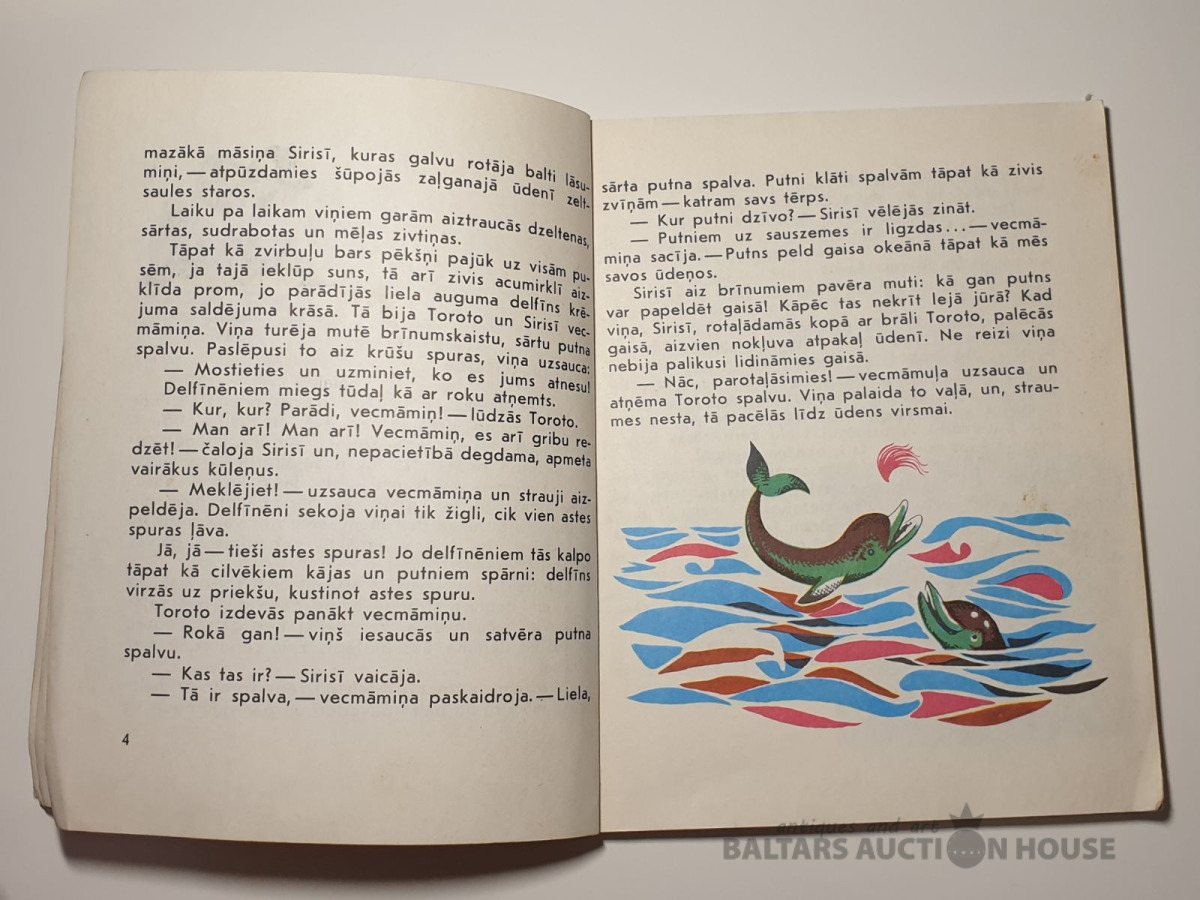 mazākā māsiņa Sirisī, kuras galvu rotāja balti lāsu-
miņi, — atpūzdamies šūpojās zaļganajā ūdenī zelt-
saules staros.
Laiku pa laikam viņiem garām aiztraucās dzeltenas,
sārtas, sudrabotas un mēļas zivtiņas.
Tāpat kā zvirbuļu bars pēkšņi pajūk uz visām pu-
sēm, ja tajā ieklūp suns, tā arī zivis acumirklī aiz-
klīda prom, jo parādījās liela auguma delfīns krē-
juma saldējuma krāsā. Tā bija Toroto un Sirisī vec-
māmiņa. Viņa turēja mutē brīnumskaistu, sārtu putna
spalvu. Paslēpusi to aiz krūšu spuras, viņa uzsauca:
— Mostieties un uzminiet, ko es jums atnesu!
Delfīnēniem miegs tūdaļ kā ar roku atņemts.
— Kur, kur? Parādi, vecmāmiņ! — lūdzās Toroto.
— Man arī! Man arī! Vecmāmiņ, es arī gribu re-
dzēt! — čaloja Sirisī un, nepacietībā degdama, apmeta
vairākus kūleņus.
— Meklējiet! — uzsauca vecmāmiņa un strauji aiz-
peldēja. Delfīnēni sekoja viņai tik žigli, cik vien astes
spuras ļāva.
Jā, jā — tieši astes spuras! Jo delfīnēniem tās kalpo
tāpat kā cilvēkiem kājas un putniem spārni: delfīns
virzās uz priekšu, kustinot astes spuru.
Toroto izdevās panākt vecmāmiņu.
— Rokā gan! — viņš iesaucās un satvēra putna
spalvu.
— Kas tas ir? — Sirisī vaicāja.
— Tā ir spalva, — vecmāmiņa paskaidroja. — Liela,
4
sārta putna spalva. Putni klāti spalvām tāpat kā zivis
zvīņām — katram savs tērps.
— Kur putni dzīvo? — Sirisī vēlējās zināt.
— Putniem uz sauszemes ir ligzdas... — vecmā-
miņa sacīja. — Putns peld gaisa okeānā tāpat kā mēs
savos ūdeņos.
Sirisī aiz brīnumiem pavēra muti: kā gan putns
var papeldēt gaisā! Kāpēc tas nekrīt lejā jūrā? Kad
viņa, Sirisī, rotaļādamās kopā ar brāli Toroto, palēcās
gaisā, aizvien nokļuva atpakaļ ūdenī. Ne reizi viņa
nebija palikusi lidināmies gaisā.
— Nāc, parotaļāsimies! — vecmāmuļa uzsauca un
atņēma Toroto spalvu. Viņa palaida to vaļā, un, strau-
mes nesta, tā pacēlās līdz ūdens virsmai.
antiques and art
BALTARS AUCTION HOUSE